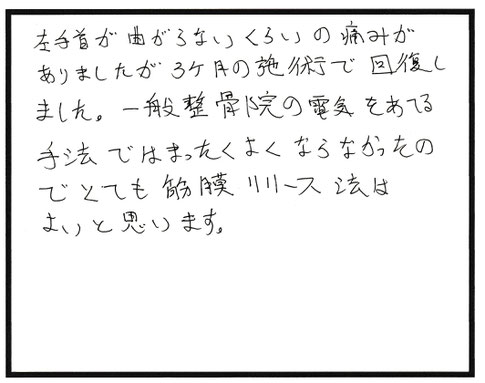 左手首が曲がらないくらいの痛みが
ありましたが3ケ月の施術で回復し
ました。一般整骨院の電気をあてる
手法ではまったくよくならなかったの
でとても筋膜リリース法は
よいと思います。